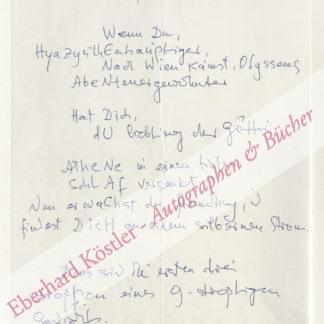 Wenn Du,
Hyazynthenhäuptiger,
Nach Wien kämst, Odysseus
Abenteuergewohnter
Hat Dich,
dU Liebling der Göttin
AtheNe in einen tiefen
SchlAf versenkt.
Nun erwachst du
findest Dich an einem silbernen Strom.
Das sind die ersten drei
Strophen eines 9-strophigen
Gedichts
Eberhard Köstler - Autographen & Bücher